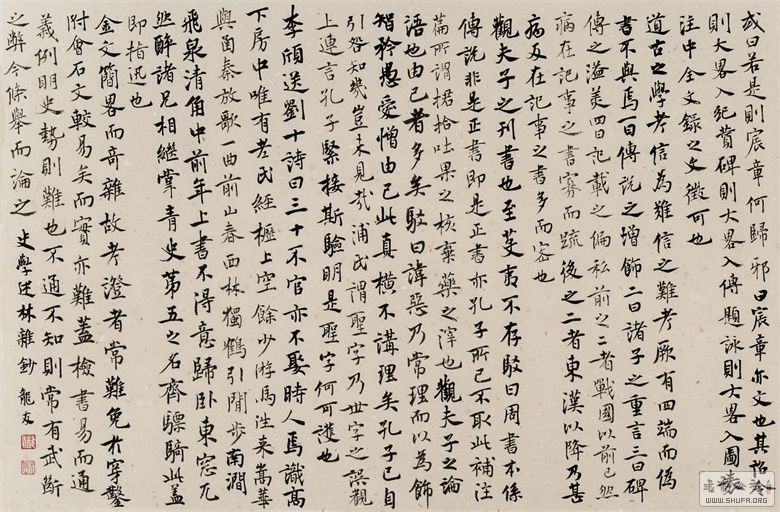 或曰若是則宸章何歸邪曰宸章亦文也其詔令
則大畧入紀贊碑則大畧入傳題詠則大畧入圖
注中全文錄之文徵可也
道古之學考信為難信之難考厥有四端而偽
書不與焉一曰傳說之增飾二曰諸子之重言三曰碑
傳之溢美四曰記載之偏私前之二者戰國以前已然
病在記事之書寡而疏後之二者東漢以降乃甚
病反在記事之書多而容也
觀夫子之刊書也至芟夷不存駁曰周書本係
傳說非是正書即是正書亦孔子所已不取此補注
篇所謂捃拾吐果之核棄藥之滓也觀夫子之論
語也由己者多矣駁曰諱惡乃常理而以為飾
智矜愚愛憎由己此真橫不講理矣孔子已自
引咎知幾豈未見哉浦氏謂聖字乃世字之誤觀
上連言孔子緊接斯驗明是聖字何可護也
李頎送劉十詩曰三十不官亦不娶時人焉識高
下房中唯有老氏經櫪上空餘少游馬往來嵩華
與函秦放歌一曲前山春西林獨鶴引閒步南澗
飛泉清角巾前年上書不得意歸臥東窗兀
然醉諸兄相繼掌青史第五之名齊驃騎此蓋
即指迅也
金文簡畧而奇雜故考證者常難免於穿鑿
附會石文較易矣而實亦難蓋檢書易而通
義例明史勢則難也不通不知則常有武斷
之弊今條舉而論之 史學述林雜鈔 龍友
WWW.SHUFA.ORG